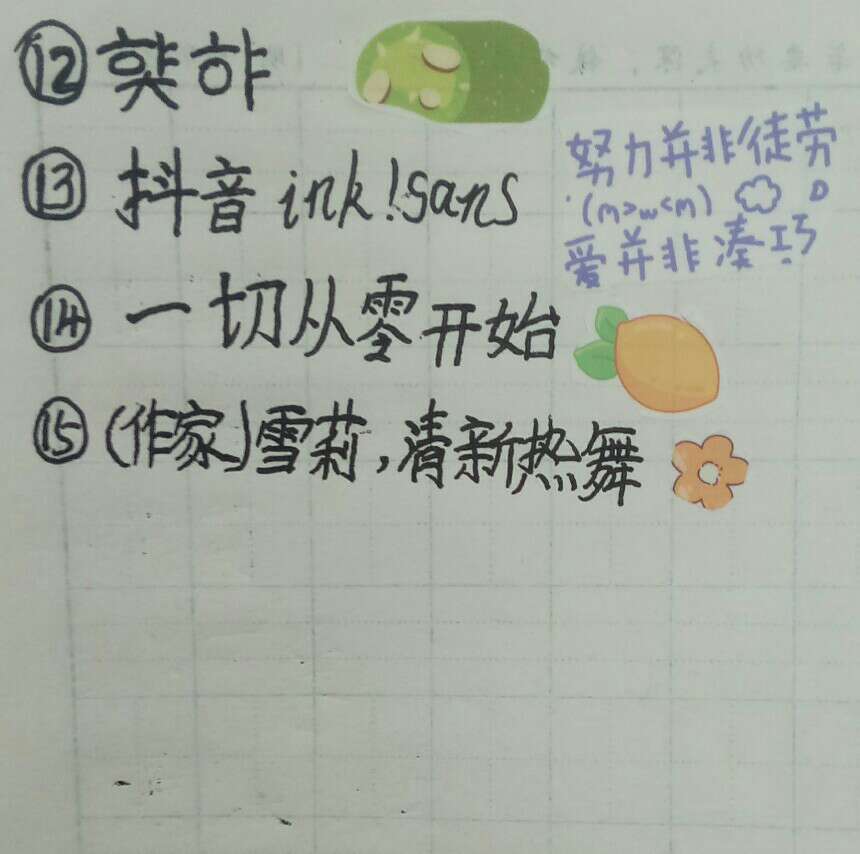 ⑫
⑬ 抖音 ink!sans
努力并非徒劳
(m>w<m)
爱并非凑巧
⑭ 一切从零开始
⑮ (作家)雪莉,清新热舞